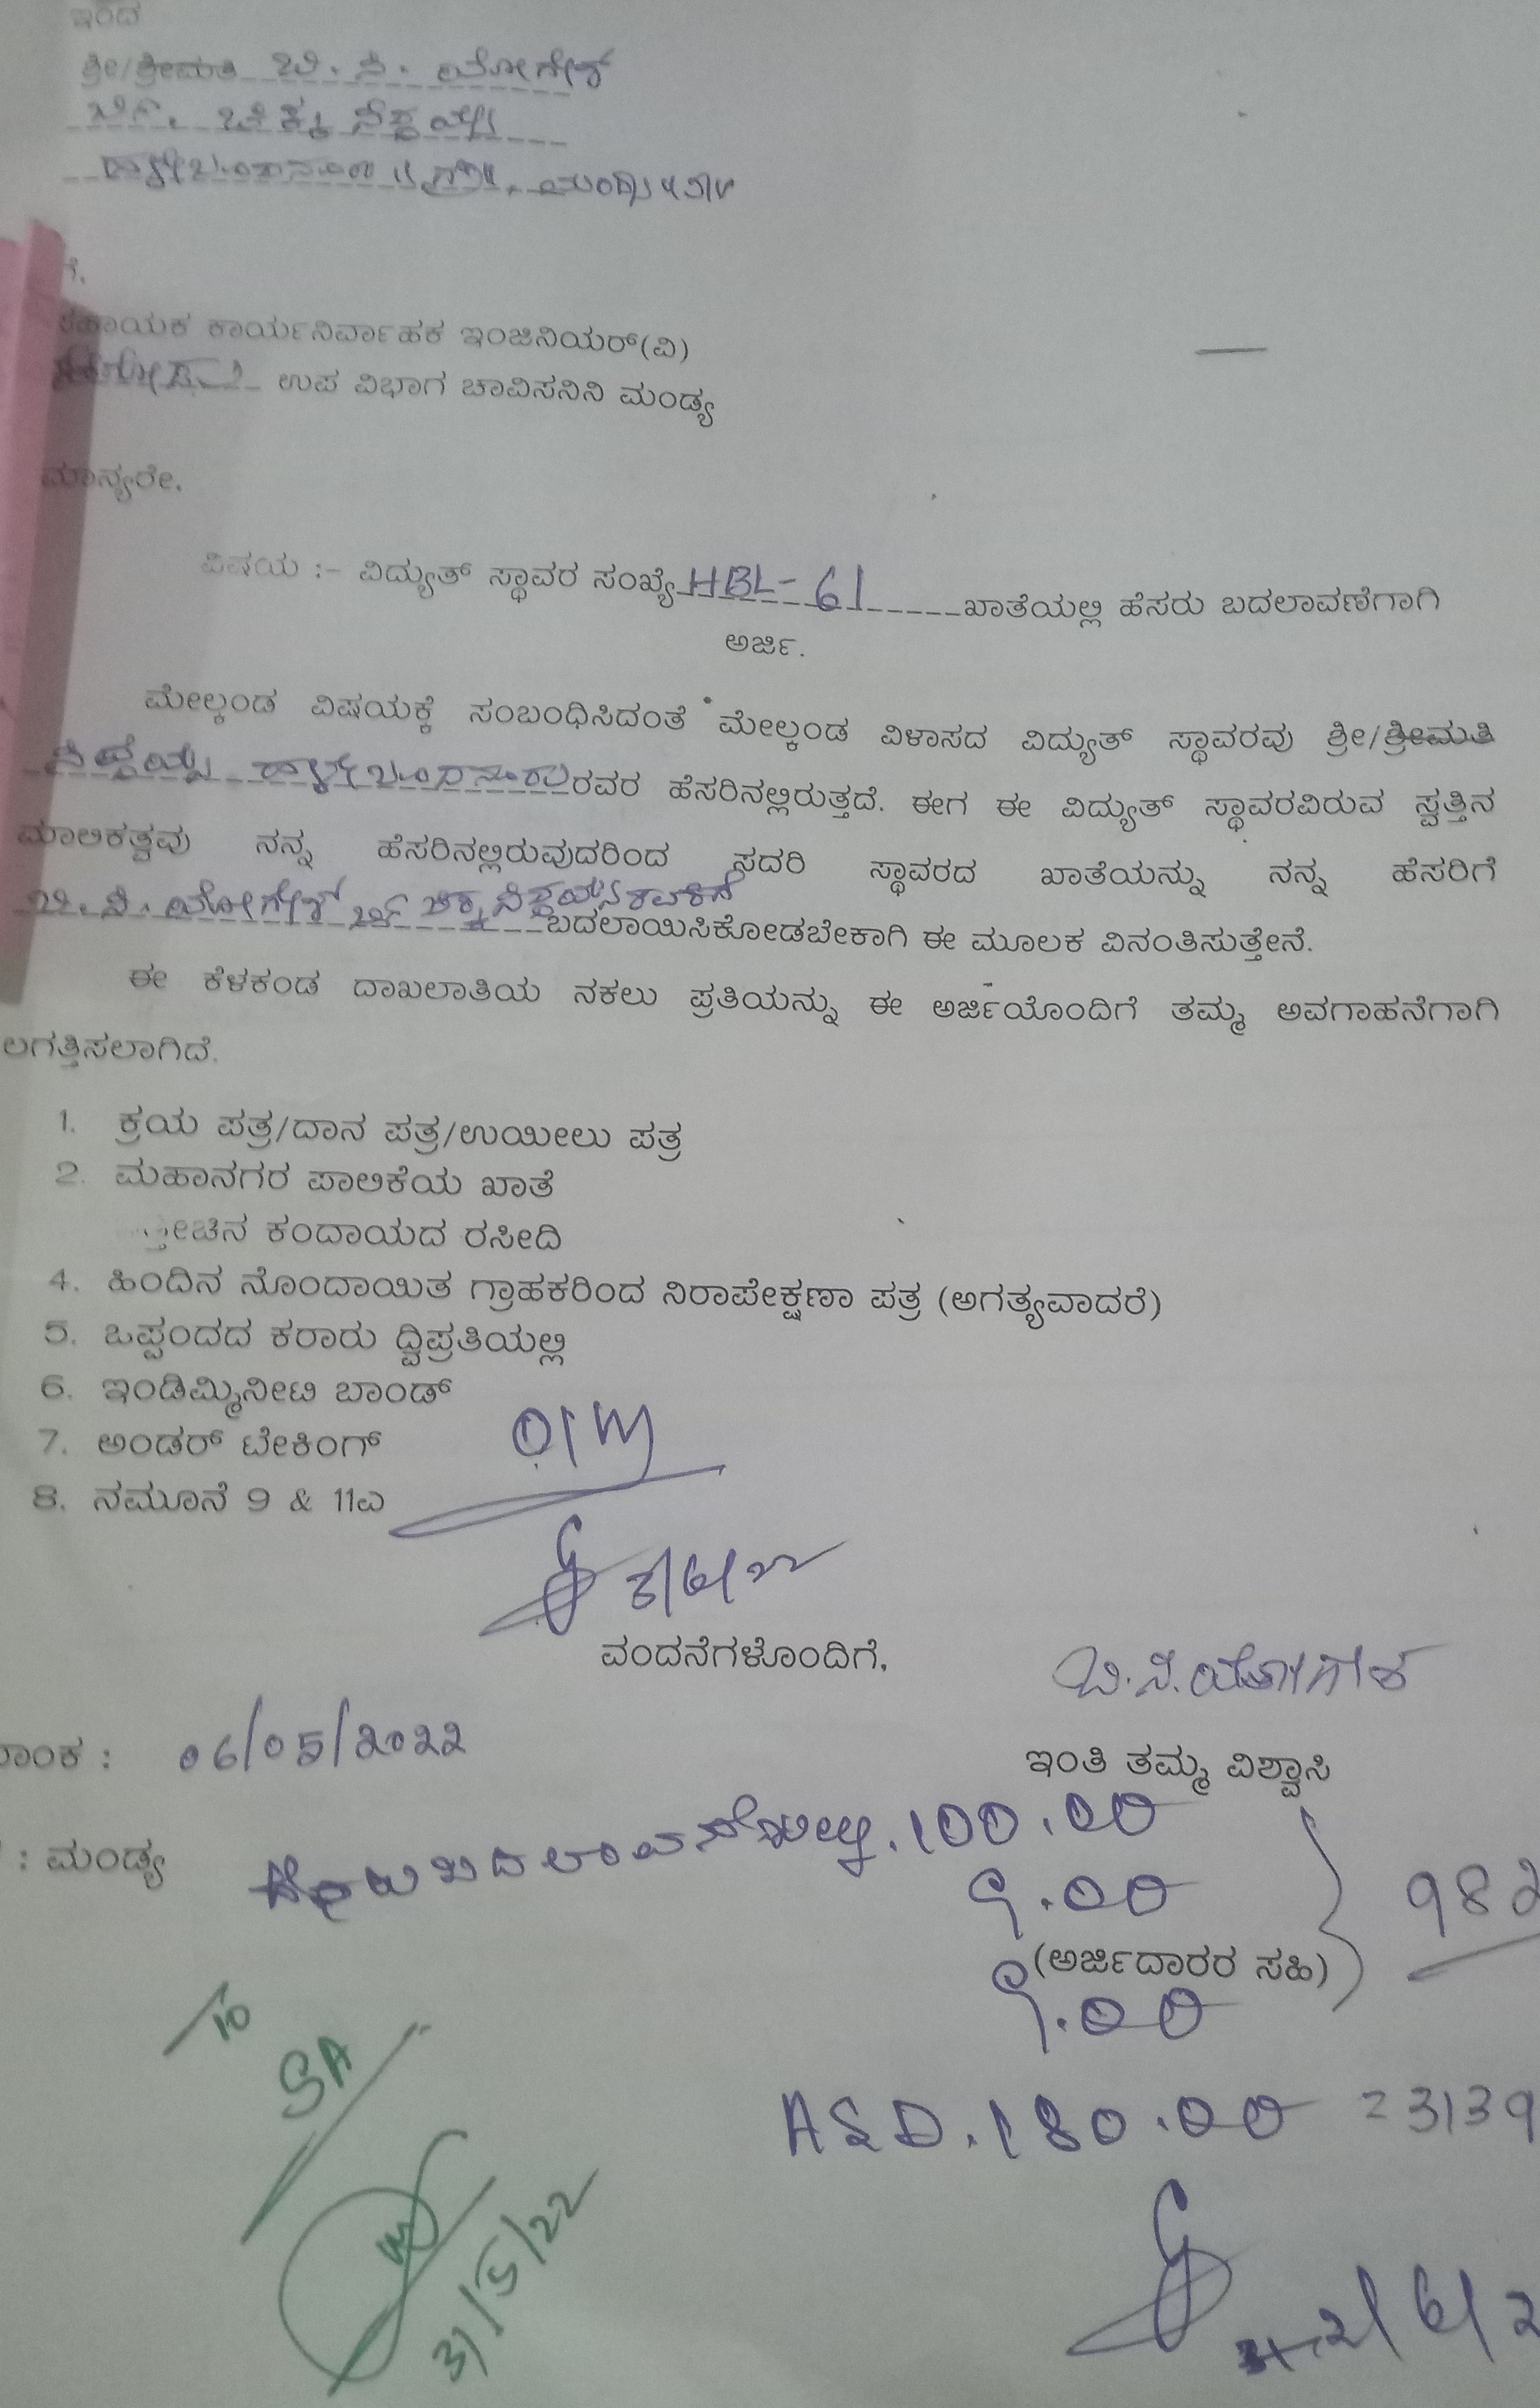 ಇಂದ
ಶ್ರೀ/ಶ್ರೀಮತಿ ಬಿ. ಸಿ. ಯೋಗೇಶ್
ಬಿನ್. ಚಿಕ್ಕ
ಗೆ,
ಸಹಾಯಕ ಕಾರ್ಯನಿರ್ವಾಹಕ ಇಂಜಿನಿಯರ್(ವಿ)
ಉಪ ವಿಭಾಗ ಚಾವಿಸನಿನಿ ಮಂಡ್ಯ
ಮಾನ್ಯರೇ,
ವಿಷಯ :- ವಿದ್ಯುತ್ ಸ್ಥಾವರ ಸಂಖ್ಯೆ HBL- 61 ಖಾತೆಯಲ್ಲಿ ಹೆಸರು ಬದಲಾವಣೆಗಾಗಿ
ಅರ್ಜಿ.
ಮೇಲ್ಕಂಡ ವಿಷಯಕ್ಕೆ ಸಂಬಂಧಿಸಿದಂತೆ ಮೇಲ್ಕಂಡ ವಿಳಾಸದ ವಿದ್ಯುತ್ ಸ್ಥಾವರವು ಶ್ರೀ/ಶ್ರೀಮತಿ
ರವರ ಹೆಸರಿನಲ್ಲಿರುತ್ತದೆ. ಈಗ ಈ ವಿದ್ಯುತ್ ಸ್ಥಾವರವಿರುವ ಸ್ವತ್ತಿನ
ಮಾಲಿಕತ್ವವು ನನ್ನ ಹೆಸರಿನಲ್ಲಿರುವುದರಿಂದ ಸದರಿ ಸ್ಥಾವರದ ಖಾತೆಯನ್ನು ನನ್ನ ಹೆಸರಿಗೆ
ಬಿ. ಸಿ. ಯೋಗೇಶ್ ಬಿನ್ ಬದಲಾಯಿಸಿಕೋಡಬೇಕಾಗಿ ಈ ಮೂಲಕ ವಿನಂತಿಸುತ್ತೇನೆ.
ಈ ಕೆಳಕಂಡ ದಾಖಲಾತಿಯ ನಕಲು ಪ್ರತಿಯನ್ನು ಈ ಅರ್ಜಿಯೊಂದಿಗೆ ತಮ್ಮ ಅವಗಾಹನೆಗಾಗಿ
ಲಗತ್ತಿಸಲಾಗಿದೆ.
1. ಕ್ರಯ ಪತ್ರ/ದಾನ ಪತ್ರ/ಉಯೀಲು ಪತ್ರ
2. ಮಹಾನಗರ ಪಾಲಿಕೆಯ ಖಾತೆ
ತ್ತೀಚಿನ ಕಂದಾಯದ ರಸೀದಿ
4. ಹಿಂದಿನ ನೊಂದಾಯಿತ ಗ್ರಾಹಕರಿಂದ ನಿರಾಪೇಕ್ಷಣಾ ಪತ್ರ (ಅಗತ್ಯವಾದರೆ)
5. ಒಪ್ಪಂದದ ಕರಾರು ದ್ವಿಪ್ರತಿಯಲ್ಲಿ
6. ಇಂಡಿಮ್ಮಿನೀಟಿ ಬಾಂಡ್
7. ಅಂಡರ್ ಟೇಕಿಂಗ್
8. ನಮೂನೆ 9 & 11ಎ
3/6/22
ವಂದನೆಗಳೊಂದಿಗೆ,
ಬಿ.ಸಿ.ಯೋಗೇಶ
ನಾಂಕ : 06/05/2022
ಇಂತಿ ತಮ್ಮ ವಿಶ್ವಾಸಿ
: ಮಂಡ್ಯ
100.00
9.00
982
(ಅರ್ಜಿದಾರರ ಸಹಿ)
9.00
To
SA
ASD.180.00 = 3139
31/5/22
2/6/2